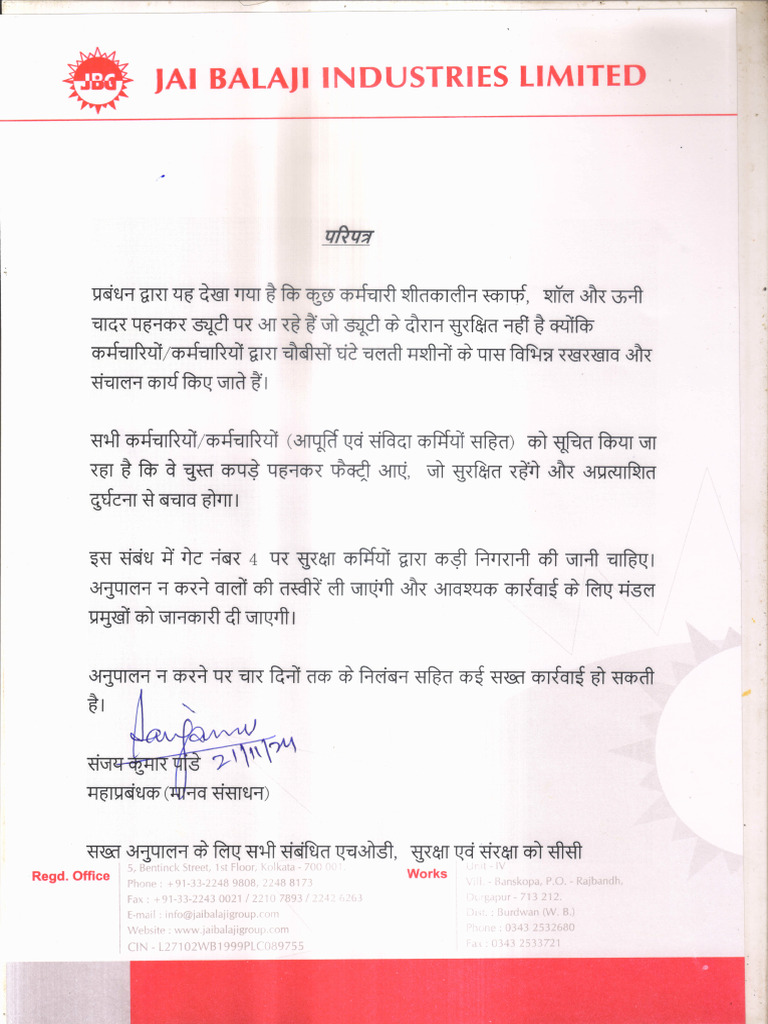 JBG
JAI BALAJI INDUSTRIES LIMITED
परिपत्र
प्रबंधन द्वारा यह देखा गया है कि कुछ कर्मचारी शीतकालीन स्कार्फ, शॉल और ऊनी
चादर पहनकर ड्यूटी पर आ रहे हैं जो ड्यूटी के दौरान सुरक्षित नहीं है क्योंकि
कर्मचारियों/कर्मचारियों द्वारा चौबीसों घंटे चलती मशीनों के पास विभिन्न रखरखाव और
संचालन कार्य किए जाते हैं।
सभी कर्मचारियों/कर्मचारियों (आपूर्ति एवं संविदा कर्मियों सहित) को सूचित किया जा
रहा है कि वे चुस्त कपड़े पहनकर फैक्ट्री आएं, जो सुरक्षित रहेंगे और अप्रत्याशित
दुर्घटना से बचाव होगा।
इस संबंध में गेट नंबर 4 पर सुरक्षा कर्मियों द्वारा कड़ी निगरानी की जानी चाहिए।
अनुपालन न करने वालों की तस्वीरें ली जाएंगी और आवश्यक कार्रवाई के लिए मंडल
प्रमुखों को जानकारी दी जाएगी।
अनुपालन न करने पर चार दिनों तक के निलंबन सहित कई सख्त कार्रवाई हो सकती
है।
21/11/24
संजय कुमार पांडे
महाप्रबंधक (मानव संसाधन)
सख्त अनुपालन के लिए सभी संबंधित एचओडी, सुरक्षा एवं संरक्षा को सीसी
Regd. Office
5, Bentinck Street, 1st Floor, Kolkata - 700 001.
Phone : +91-33-2248 9808, 2248 8173
Fax : +91-33-2243 0021 / 2210 7893 / 2242 6263
E-mail : info@jaibalajigroup.com
Website : www.jaibalajigroup.com
CIN - L27102WB1999PLC089755
Works
Unit - IV
Vill. - Banskopa, P.O. - Rajbandh,
Durgapur - 713 212.
Dist. : Burdwan (W. B.)
Phone : 0343 2532680
Fax : 0343 2533721